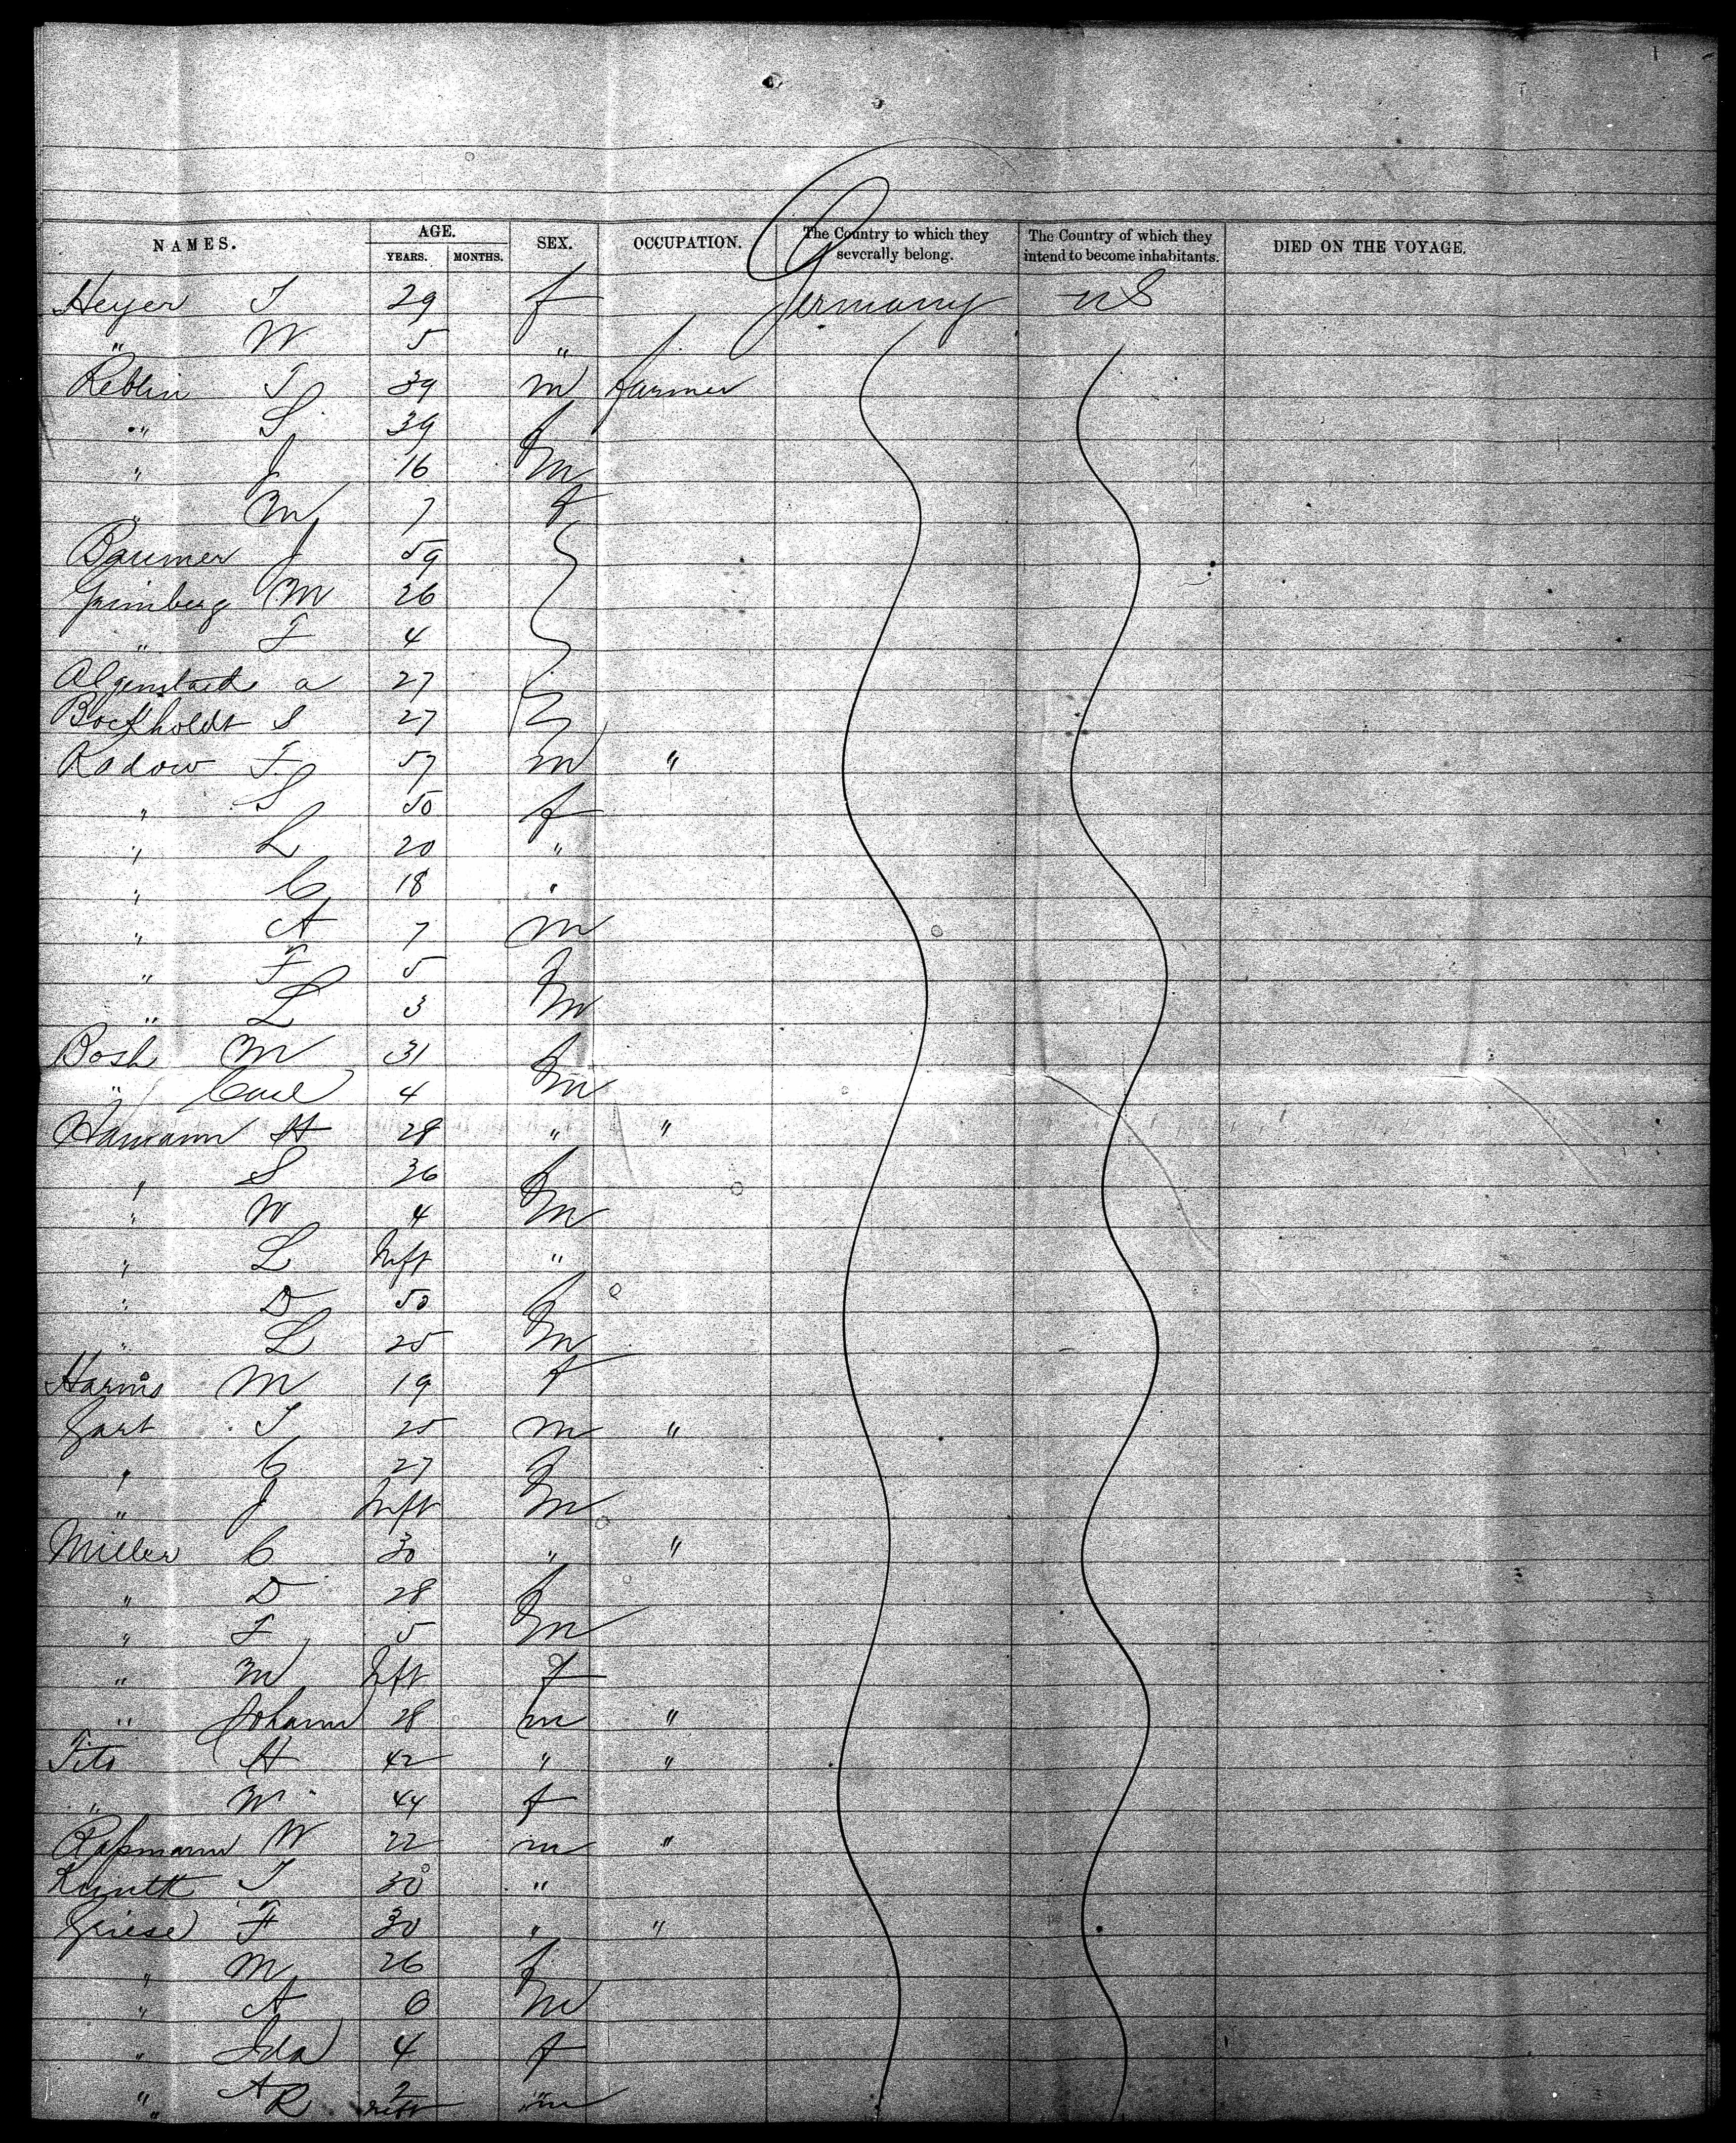 NAMES. AGE. SEX. OCCUPATION. The Country to which they severally belong. The Country of which they intend to become inhabitants. DIED ON THE VOYAGE.
YEARS. MONTHS.
Heyer 29 f Germany US
" W 5 "
Reblin 39 m farmer
" S 39 f
" J 16 m
" M 7 f
Baumer J 59
Grimberg M 26
" F 4
Algenstaedt a 27
Bockholdt S 27
Radow F 57 m "
" S 50 f
" L 20 "
" C 18 "
" A 7 m
" F 5 f
" L 3 m
Bosh M 31 f
" Carl 4 m
Hamann H 28 " "
" S 36 f
" W 4 m
" L Inft "
" D 50 f
" L 25 m
Harms M 19 f
Gart 25 m "
" C 27 f
" J Inft m
Miller C 30 " "
" D 28 f
" F 5 m
" M Inft f
" Johann 28 m "
H 42 " "
" M 44 f
W 22 m "
30 "
Griese F 30 " "
" M 26 f
" A 6 m
" Ida 4 f
" A 2
" R Inft m